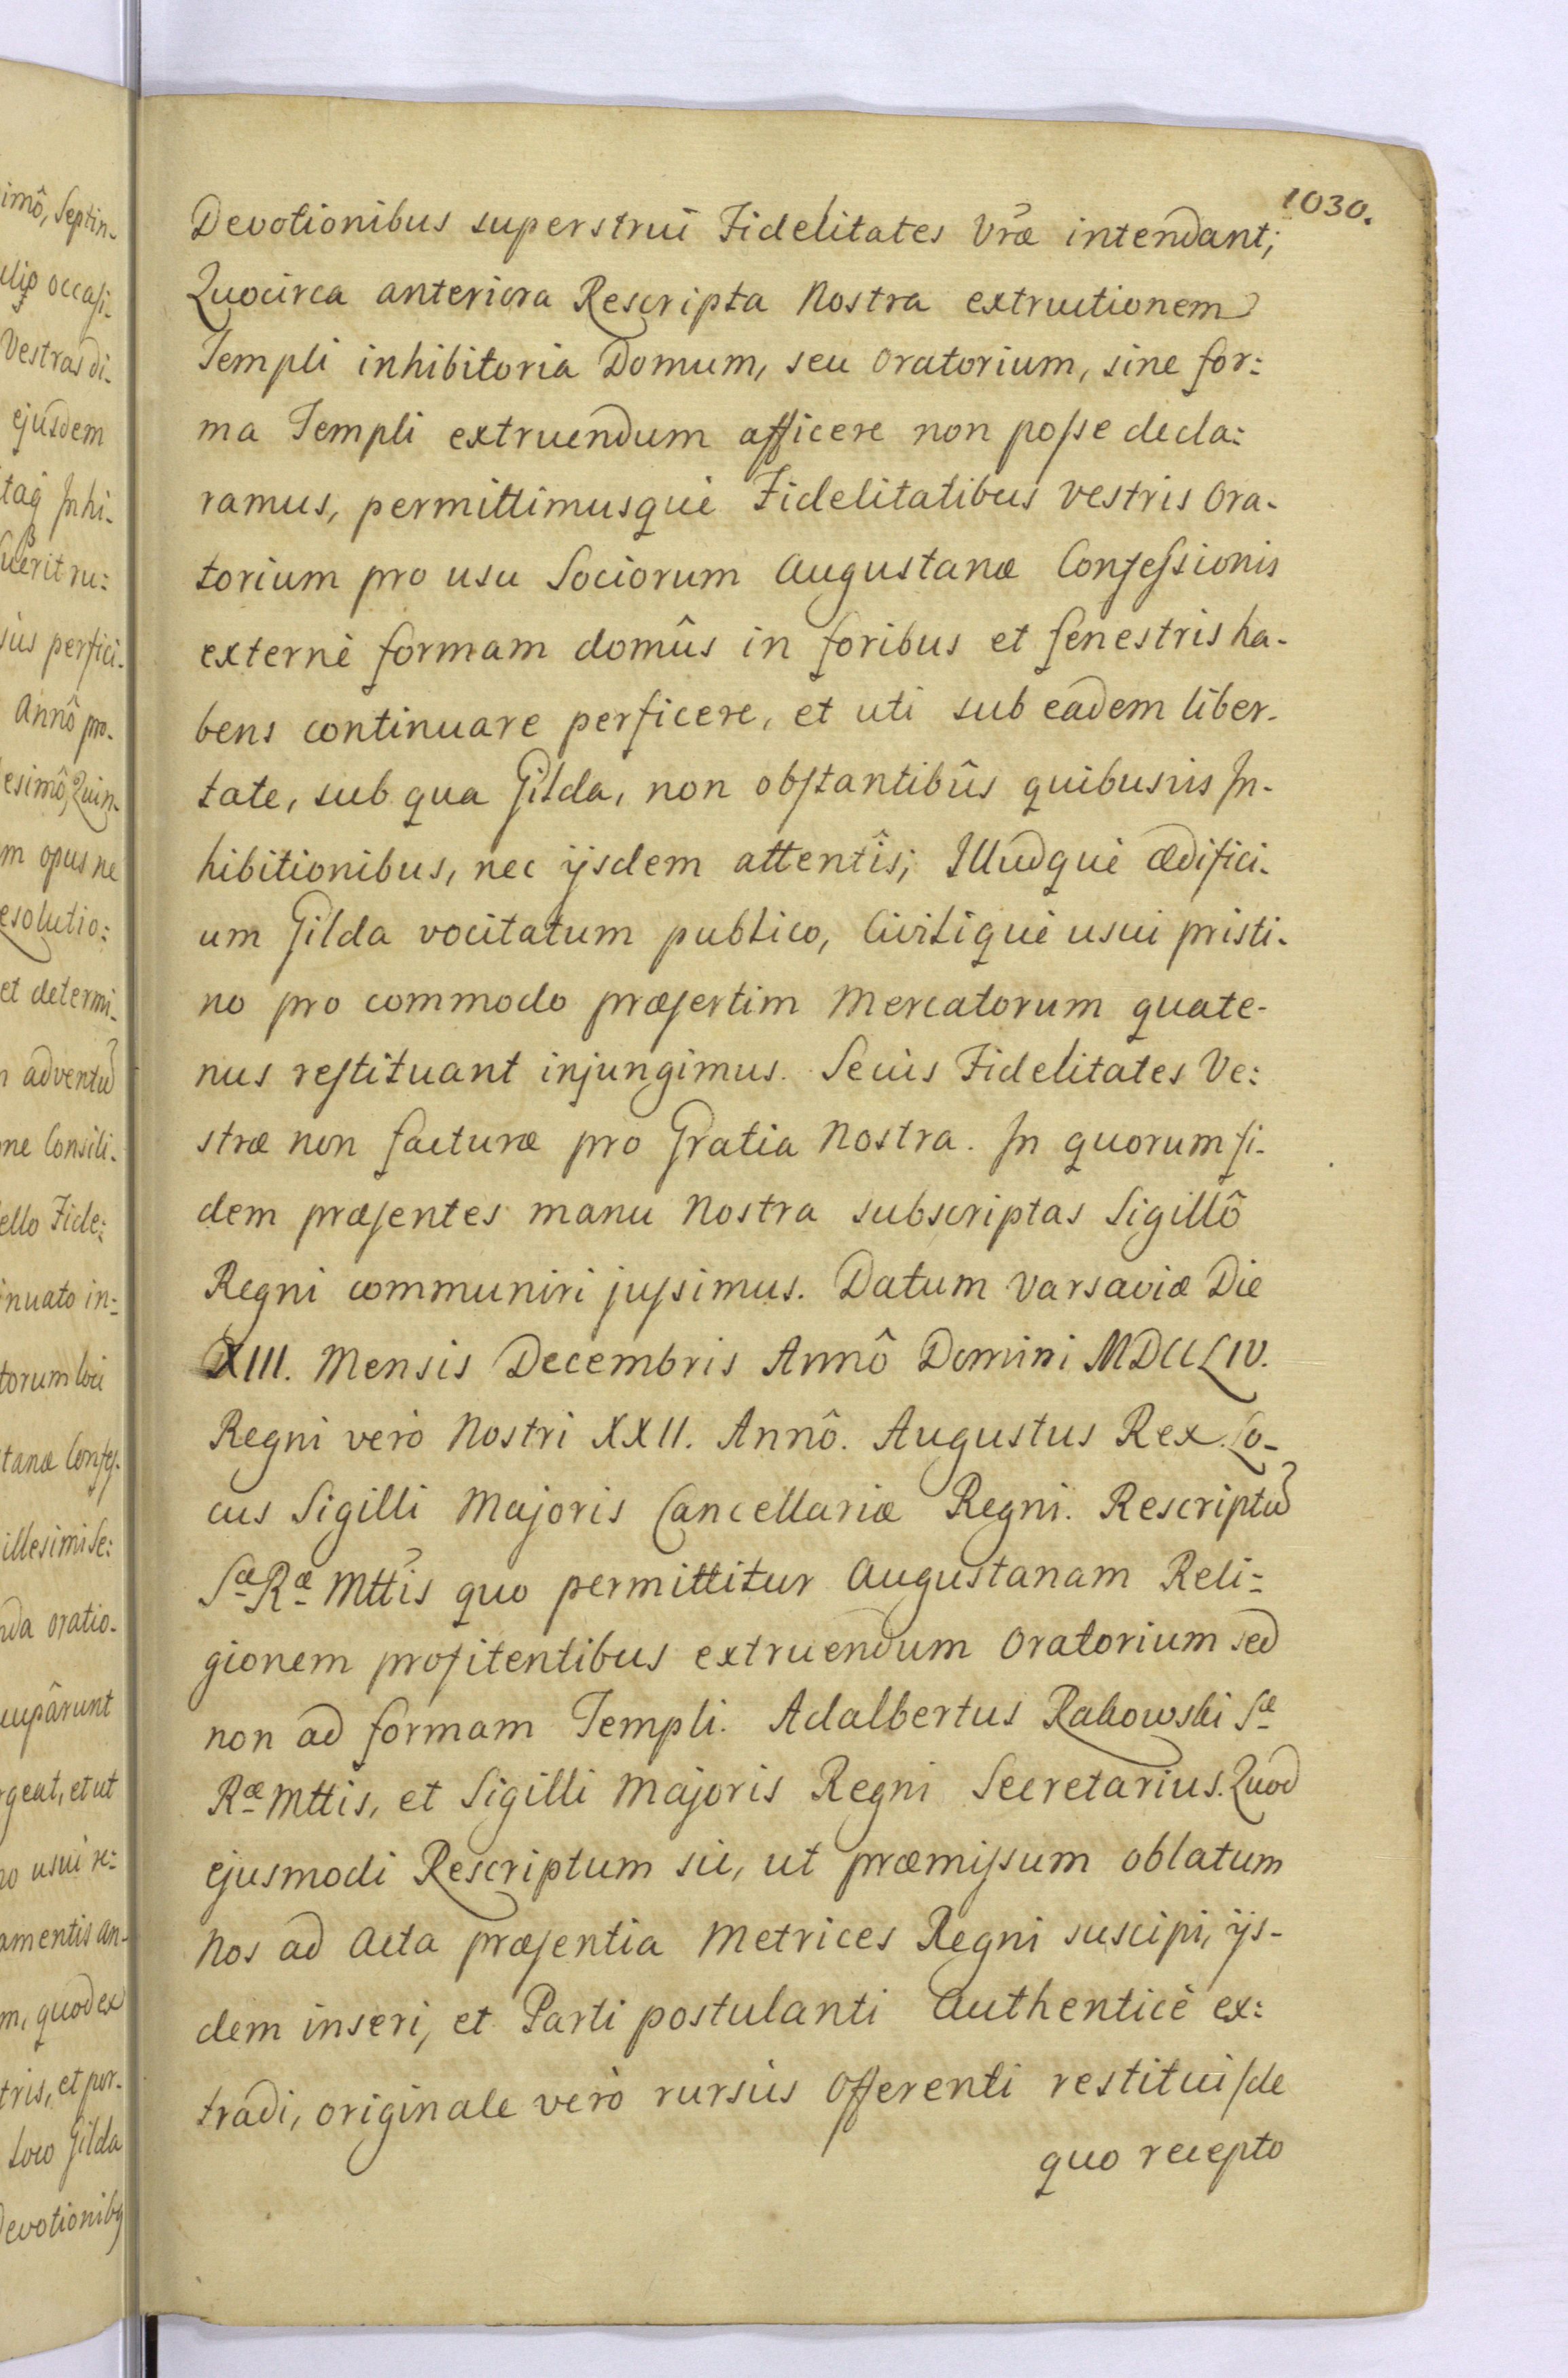 1030.
Devotionibus superstrui Fidelitates Vræ intendant;
Quocirca anteriora Rescripta Nostra extructionem
Templi inhibitoria Domum, seu Oratorium, sine for:
ma Templi extruendum afficere non poſse decla:
ramus, permittimusquè Fidelitatibus Vestris Ora-
torium pro usu Sociorum Augustanæ Confeſsionis
externè formam domûs in foribus et fenestris ha-
bens continuare perficere, et uti sub eadem liber-
tate, sub qua Gilda, non obſtantibûs quibusvis In-
hibitionibus, nec ijsdem attentîs; Illudquè ædifici-
um Gilda vocitatum publico, Civiliquè usui pristi-
no pro commodo præſertim Mercatorum quate-
nus reſtituant injungimus. Secùs Fidelitates Ve:
stræ non facturæ pro Gratia Nostra. In quorum fi-
dem præſentes manu Nostra subscriptas Sigillô
Regni communiri juſsimus. Datum Varsaviæ Die
XIII. Mensis Decembris Annô Domini MDCCLIV.
Regni verò Nostri XXII. Annô. Augustus Rex. Lo-
cus Sigilli Majoris Cancellariæ Regni. Rescriptũ
Sæ Ræ Mttis quo permittitur Augustanam Reli-
gionem profitentibus extruendum Oratorium sed
non ad formam Templi. Adalbertus Rakowski Sæ
Ræ Mttis, et Sigilli Majoris Regni Secretarius. Quod
ejusmodi Rescriptum sic, ut præmiſsum oblatum
Nos ad Acta præſentia Metrices Regni suscipi, ijs-
dem inseri, et Parti postulanti Authenticè ex:
tradi, originale verò rursùs Offerenti restitui /de
quo recepto
imô, Septin-
occaſi-
Vestras di-
ejusdem
Inhi-
fuerit ru:
perfici-
Annô pro-
esimô, Quin-
m opus ne
esolutio:
et determi-
adventũ
ne Consili-
ello Fide:
nuato in-
torum loci
tanæ Confeſ-
illesimi Se:
nda oratio-
cupârunt
rgeat, et ut
no usui re:
amentis an-
m, quod ex
tris, et per-
loco Gilda
Devotionibꝯ